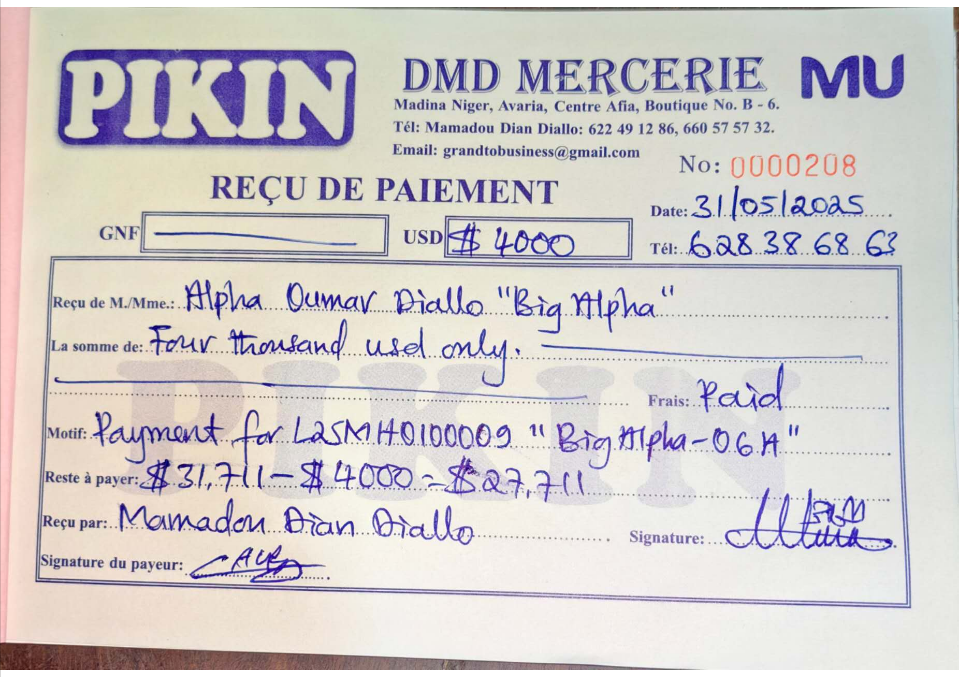 PIKIN
DMD MERCERIE
MU
Madina Niger, Avaria, Centre Afia, Boutique No. B - 6.
Tél: Mamadou Dian Diallo: 622 49 12 86, 660 57 57 32.
Email: grandtobusiness@gmail.com
No: 0000208
REÇU DE PAIEMENT
Date: 31/05/2025
GNF
USD $ 4000
Tél: 628 38 68 63
Reçu de M./Mme.: Alpha Oumar Diallo "Big Alpha"
La somme de: Four thousand usd only.
Frais: Paid
Motif: Payment for L25MH0100009 "Big Alpha-06H"
Reste à payer: $31,711 - $4000 = $27,711
Reçu par: Mamadou Dian Diallo
Signature:
Signature du payeur:
PIKIN